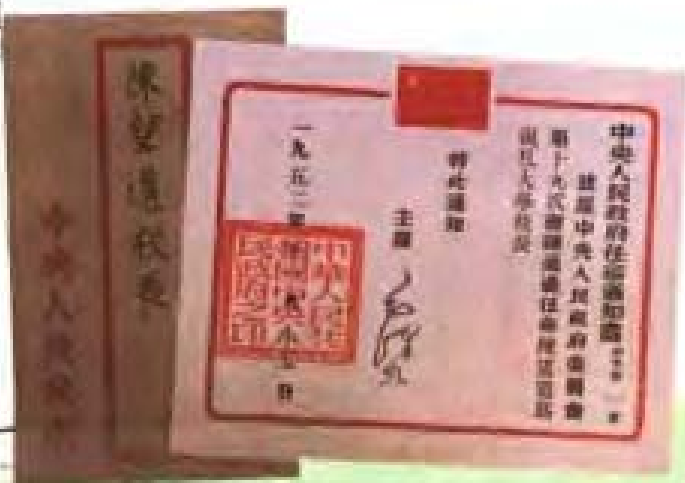 中央人民政府任命通知書
茲經中央人民政府委員會
第十九次會議通過任命陳望道為
復旦大學校長
特此通知
主席 毛澤東
一九五二年
中華人民共和國中央人民政府之印
陳望道校長
中央人民政府